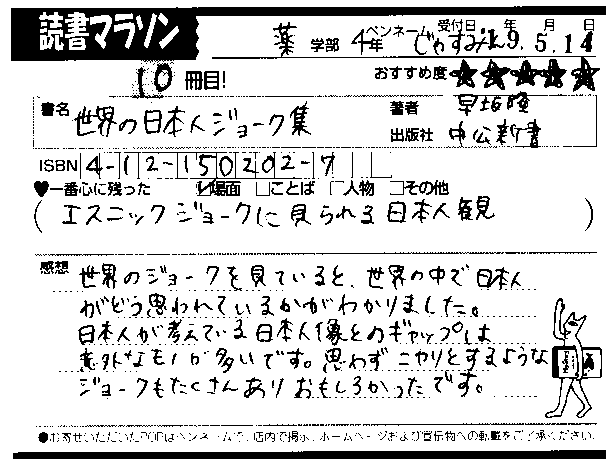 読書マラソン
薬 学部 4年 ペンネーム じゃすみん 受付日 年 月 日 19.5.14
10 冊目!
おすすめ度 ★★★★★
書名 世界の日本人ジョーク集
著者 早坂隆
出版社 中公新書
ISBN 4-12-150202-7
♥一番心に残った ☑場面 □ことば □人物 □その他
(エスニックジョークに見られる日本人観)
感想 世界のジョークを見ていると、世界の中で日本人
がどう思われているかがわかりました。
日本人が考えている日本人像とのギャップは
意外なものが多いです。思わずニヤリとするような
ジョークもたくさんありおもしろかったです。
●お寄せいただいたPOPはペンネームで、店内で掲示、ホームページおよび宣伝物への転載をご了承ください。